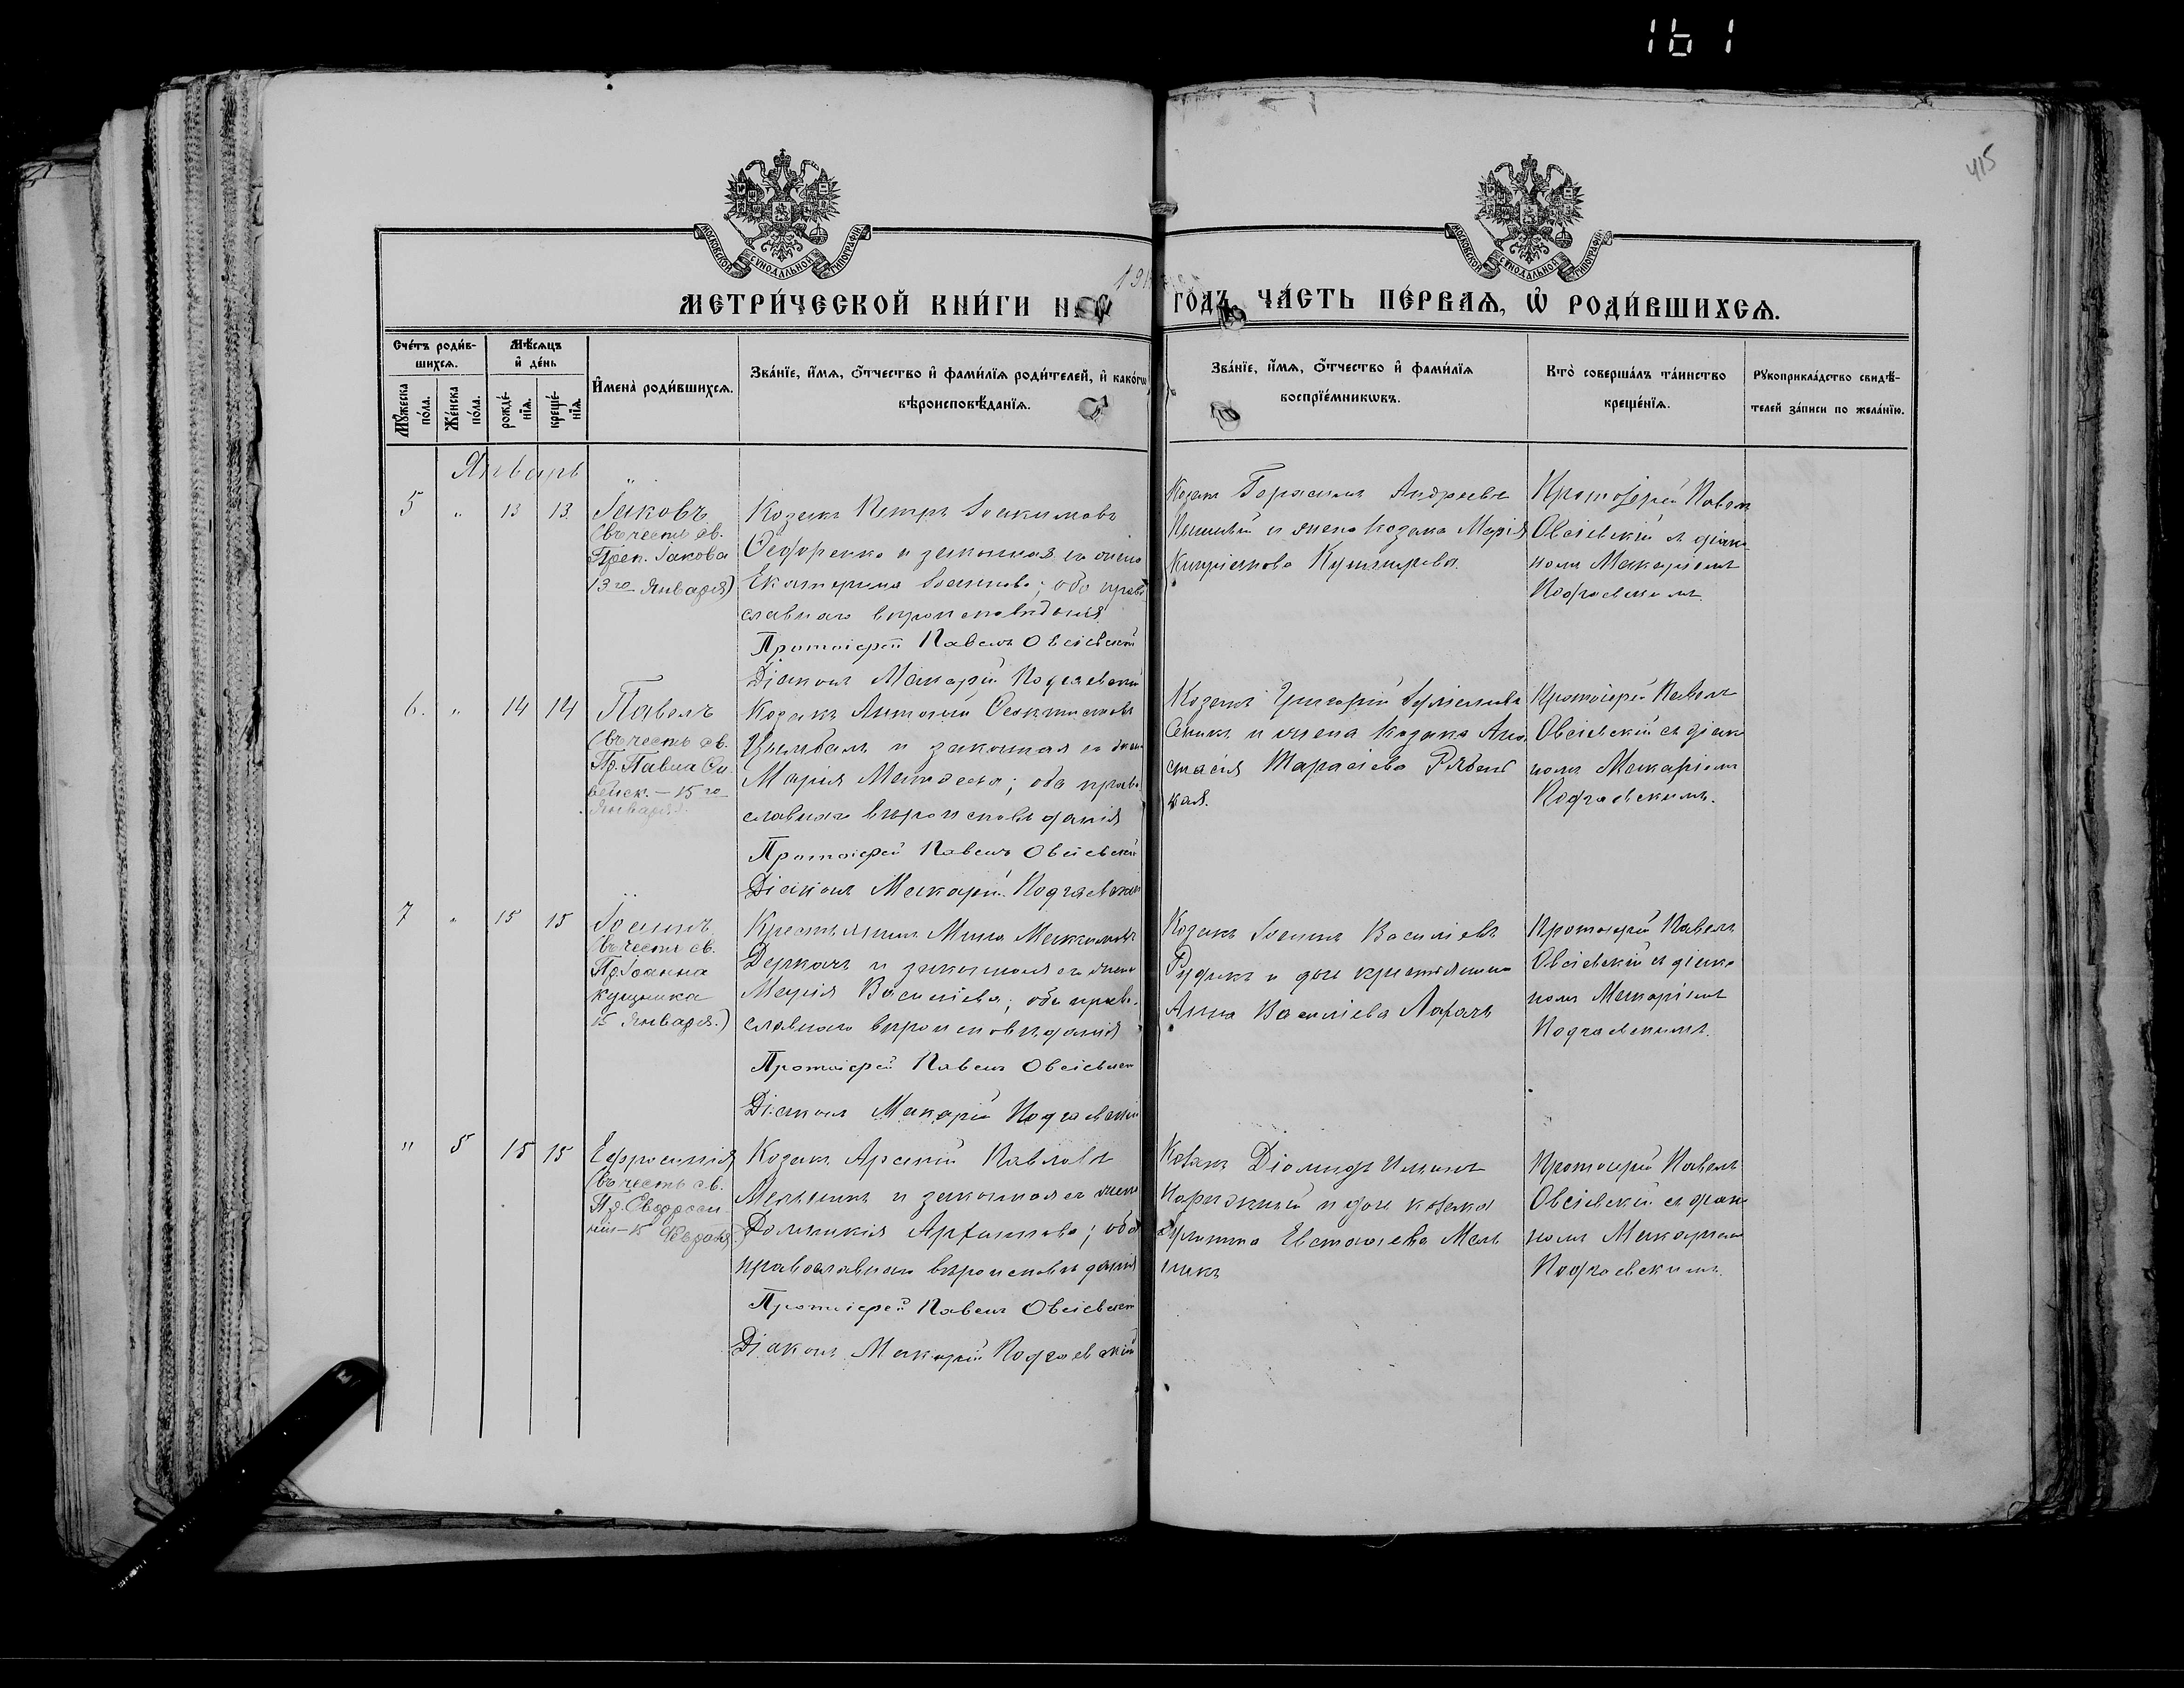 161
415
МОСКОВСКОЙ СѴНОДАЛЬНОЙ ТИПОГРАФІИ
МОСКОВСКОЙ СѴНОДАЛЬНОЙ ТИПОГРАФІИ
МЕТРИ́ЧЕСКОЙ КНИ́ГИ Н
ГОДЪ, ЧА́СТЬ ПЕ́РВАѦ, Ѡ҆ РОДИ́ВШИХСѦ.
Сче́тъ роди́в-
шихсѧ.
Мꙋ́жеска по́ла.
Же́нска по́ла.
Мѣ́сѧцъ
и҆ де́нь
рожде́-нїѧ.
креще́-нїѧ.
И҆мена̀ роди́вшихсѧ.
Зва́нїе, и҆́мѧ, ѻ҆́тчество и҆ фами́лїѧ роди́телей, и҆ како́гѡ
вѣроисповѣ́данїѧ.
Зва́нїе, и҆́мѧ, ѻ҆́тчество и҆ фами́лїѧ
воспрїе́мникѡвъ.
Кто̀ соверша́лъ та́инство
креще́нїѧ.
Рꙋкоприкла́дство свидѣ́-
телей за́писи по жела́нїю.
Январь
5 " 13 13
Іаковъ
(въ честь св.
Преп. Іакова
13го Января)
Козакъ Петръ Іоакимовъ
Ѳедоренко и законная его жена
Екатерина Іоаннова; оба право
славнаго вѣроисповѣданія
Протоіерей Павелъ Овсіевскій
Діаконъ Макарій Подгаевскій
Козакъ Герасимъ Андреевъ
и жена козака Марія
Кипріанова
Протоіерей Павелъ
Овсіевскій съ діако
номъ Макаріемъ
Подгаевскимъ.
6. " 14 14
Павелъ
(въ честь св.
Пр. Павла Ѳи
вейск. – 15го
Января)
Козакъ Антоній Ѳеоктистовъ
Цымбалъ и законная его жена
Марія Матѳеева; оба право
славнаго вѣроисповѣданія
Протоіерей Павелъ Овсіевскій
Діаконъ Макарій Подгаевскій
Козакъ Григорій
Сеникъ и жена козака Ана
стасія Тарасіева Рябень
кая.
Протоіерей Павелъ
Овсіевскій съ діако
номъ Макаріемъ
Подгаевскимъ.
7 " 15 15
Іоаннъ
(въ честь св.
Пр. Іоанна
кущника
15 Января.)
Крестьянинъ Мина Максимовъ
Деркачъ и законная его жена
Марія Василіева; оба право
славнаго вѣроисповѣданія
Протоіерей Павелъ Овсіевскій
Діаконъ Макарій Подгаевскій
Козакъ Іоаннъ Василіевъ
Рудикъ и дочь крестьянина
Анна Василіева
Протоіерей Павелъ
Овсіевскій съ діако
номъ Макаріемъ
Подгаевскимъ.
" 5 15 15
Евфросинія
(въ честь св.
Пр. Евфроси
ніи – 15 Февраля)
Козакъ Арсеній Павловъ
Мельникъ и законная его жена
Домникія; оба
православнаго вѣроисповѣданія
Протоіерей Павелъ Овсіевскій
Діаконъ Макарій Подгаевскій
Козакъ Діомидъ
и дочь козака
Евстаѳіева Мель
никъ
Протоіерей Павелъ
Овсіевскій съ діако
номъ Макаріемъ
Подгаевскимъ.